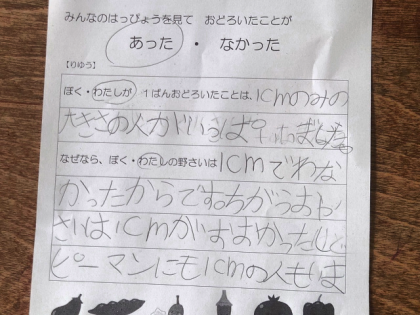 みんなのはっぴょうを見て おどろいたことが
あった ・ なかった
【りゆう】
ぼく・わたしが 1ばんおどろいたことは、1cmのみの
大きさの人がいっぱい
なぜなら、ぼく・わたしの野さいは1cmでわな
かったからですちがうおや
さいは1cmがおおかったけど
ピーマンにも1cmの人もいま